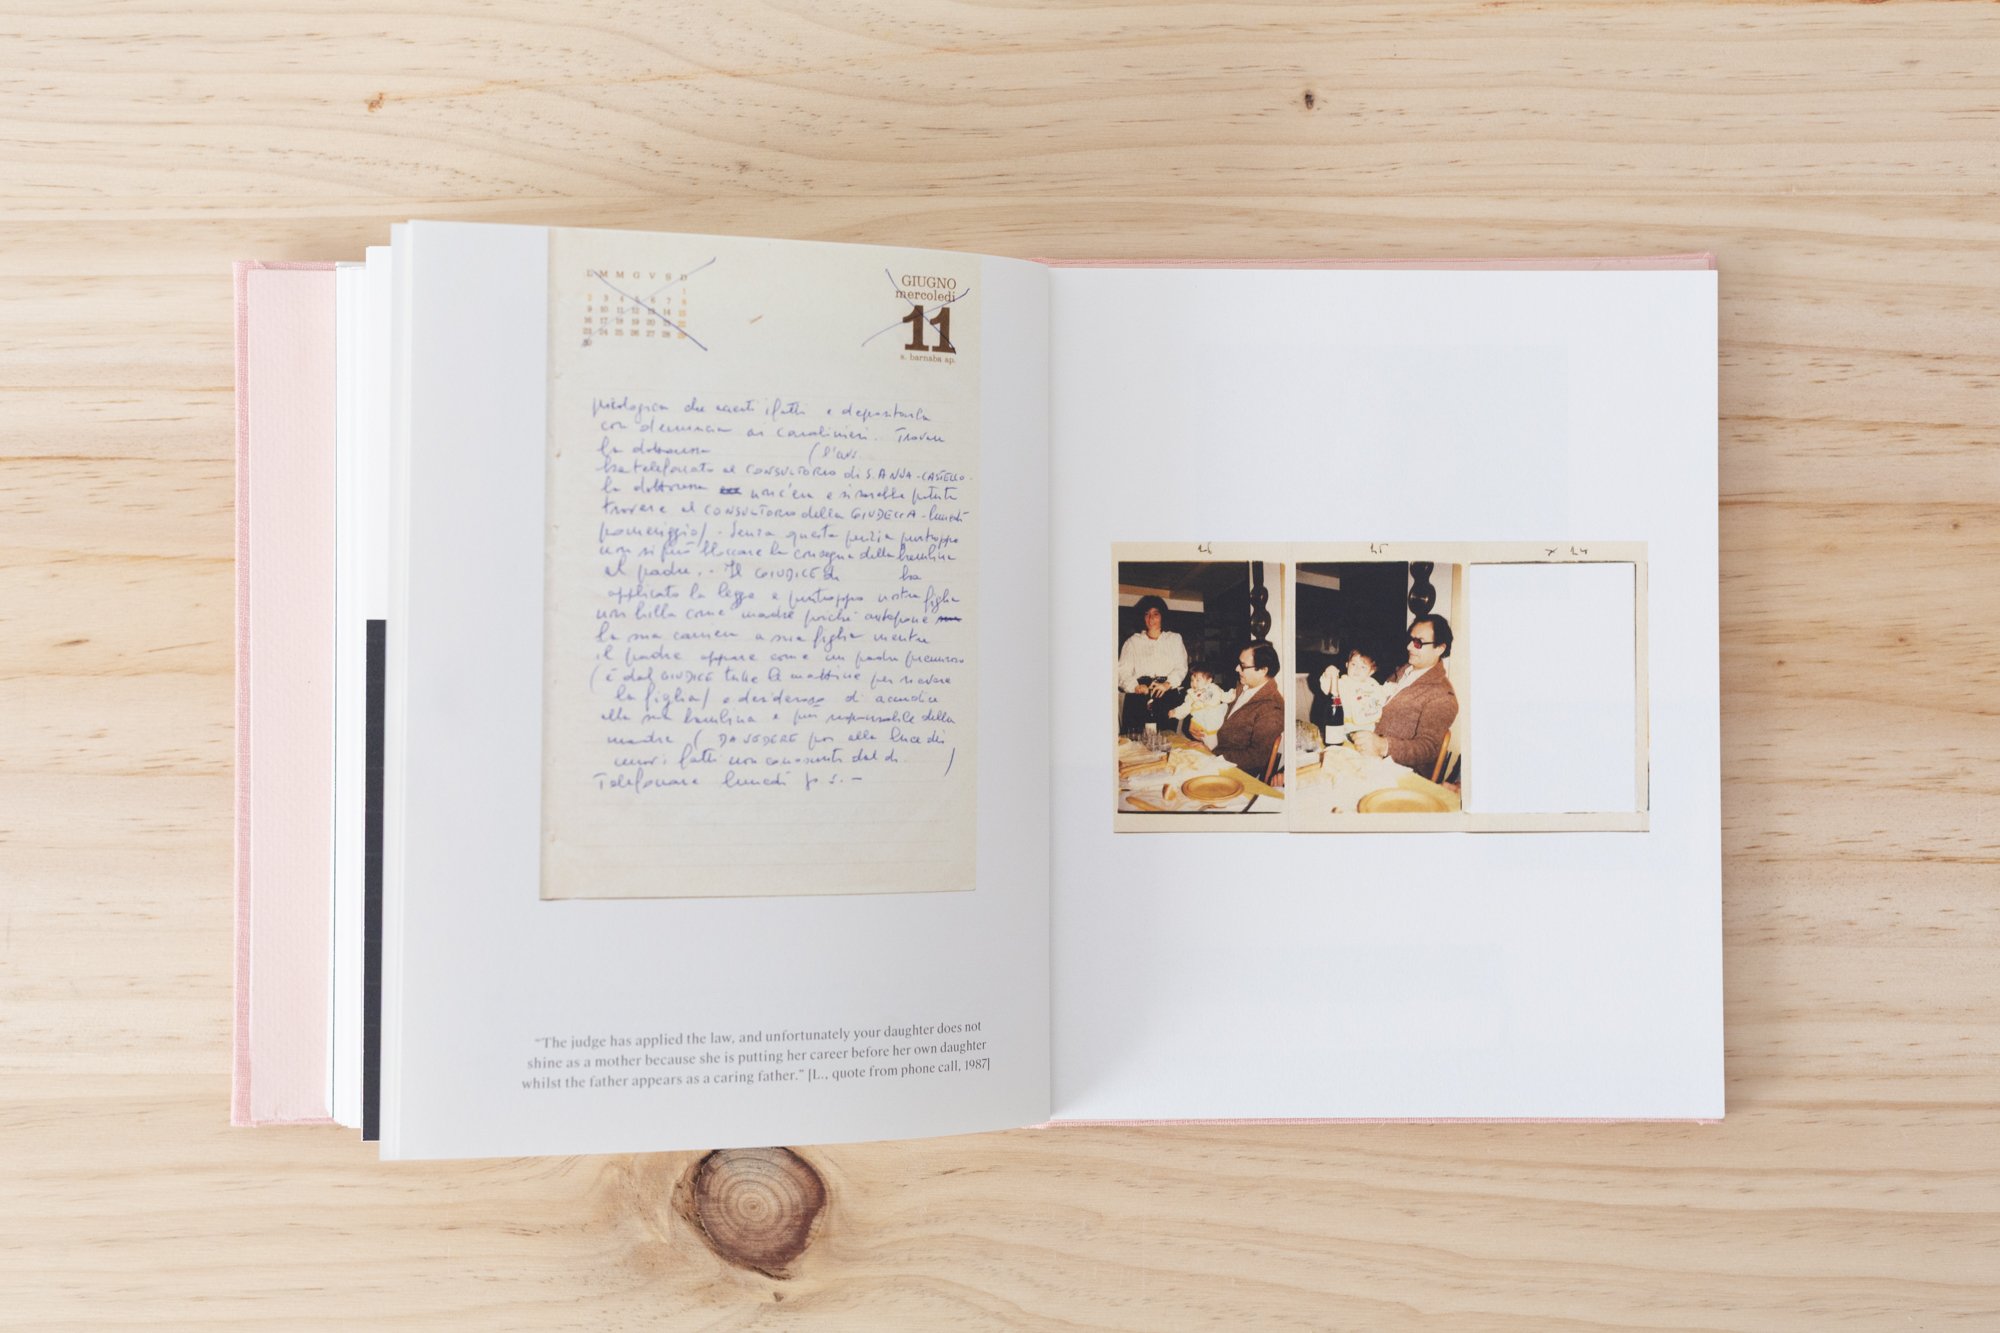 L M M G V S D
1
2 3 4 5 6 7 8
9 10 11 12 13 14 15
16 17 18 19 20 21 22
23 24 25 26 27 28 29
30
GIUGNO
mercoledì
11
s. barnaba ap.
psicologica che accerti i fatti e depositarla
con denuncia ai Carabinieri. Trovare
la dottoressa (l'avv.
ha telefonato al CONSULTORIO di S. ANNA - CASTELLO -
la dottoressa non c'era e si sarebbe potuta
trovare al CONSULTORIO della GIUDECCA - lunedì
pomeriggio). Senza questa perizia purtroppo
non si può bloccare la consegna della bambina
al padre. - Il GIUDICE di ha
applicato la legge e purtroppo vostra figlia
non brilla come madre poiché antepone
la sua carriera a sua figlia mentre
il padre appare come un padre premuroso
(è dal GIUDICE tutte le mattine per riavere
la figlia) e desideroso di accudire
alla sua bambina e più responsabile della
madre (DA VEDERE poi alla luce dei
nuovi fatti non conosciuti dal di )
Telefonare lunedì p. s. -
“The judge has applied the law, and unfortunately your daughter does not
shine as a mother because she is putting her career before her own daughter
whilst the father appears as a caring father.” [L., quote from phone call, 1987]
26 25 x 24